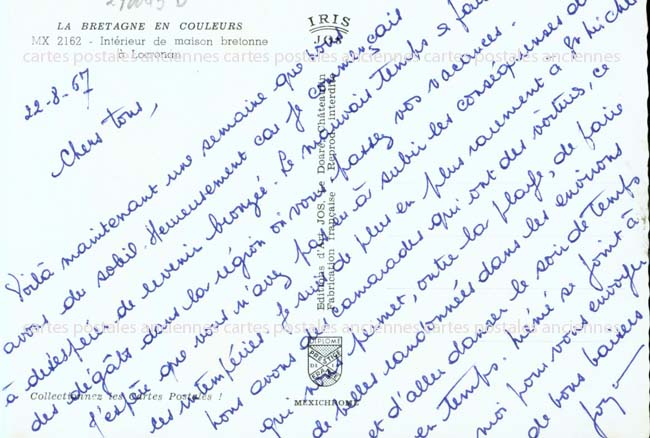 LA BRETAGNE EN COULEURS
MX 2162 - Intérieur de maison bretonne
à Locronan
IRIS
JOS
22-8-67
Chers tous,
Voilà maintenant une semaine que nous
avons du soleil. Heureusement car je commençais
à désespérer de revenir bronzée. Le mauvais temps a fait
des dégâts dans la région où vous passez vos vacances.
J'espère que vous n'avez pas eu à subir les conséquences de
ces intempéries. Je suis de plus en plus rarement à St Michel
nous avons des camarades qui ont des voitures, ce
qui nous permet, outre la plage, de faire
de belles randonnées dans les environs
et d'aller danser le soir de temps
en temps. Mémé se joint à
moi pour vous envoyer
de bons baisers
Editions d'Art JOS, Le Doaré, Châteaulin
Fabrication française Reprod. interdite
DIPLOME
PRESTIGE
DE
FRANCE
MEXICHROME
Collectionnez les Cartes Postales !
cartes postales anciennes cartes postales anciennes cartes postales anciennes
cartes postales anciennes cartes postales anciennes cartes postales anciennes